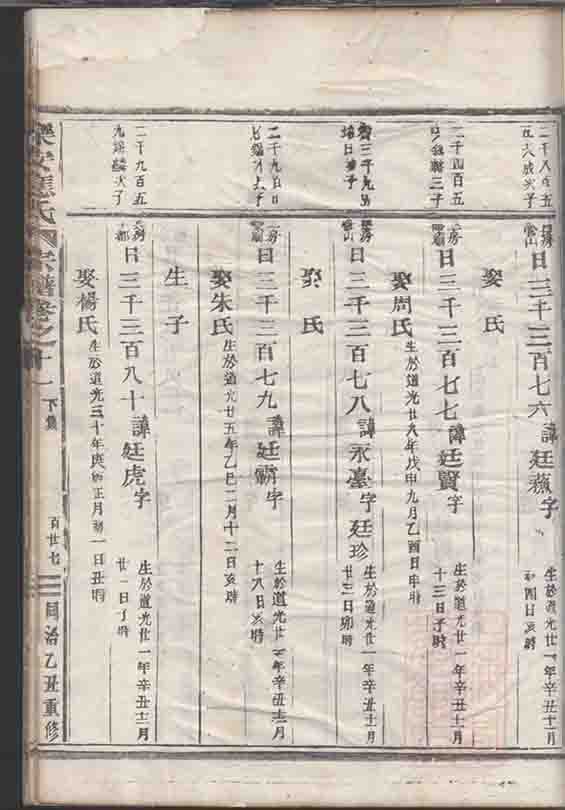 二千八百五
次子
雪山房
日三千三百七六諱廷燕字
生於道光廿一年辛丑十一月
初四日亥時
娶 氏
二千四百五
三子
日三千三百七七諱廷賢字
生於道光廿一年辛丑十一月
十三日子時
娶周氏生於道光廿八年戊申九月乙酉日申時
次子
日三千三百七八諱永臺字廷珍
生於道光廿一年辛丑十一月
廿三日卯時
娶 氏
次子
日三千三百七九諱廷霸字
生於道光廿一年辛丑十二月
十八日亥時
娶朱氏生於道光廿五年乙巳二月十二日亥時
生子
二千九百五
次子
日三千三百八十諱廷虎字
生於道光廿一年辛丑十二月
廿一日子時
娶楊氏生於道光三十年庚戌正月初一日丑時
樂安蔣氏宗譜卷之十一 下集 百廿七 同治乙丑重修